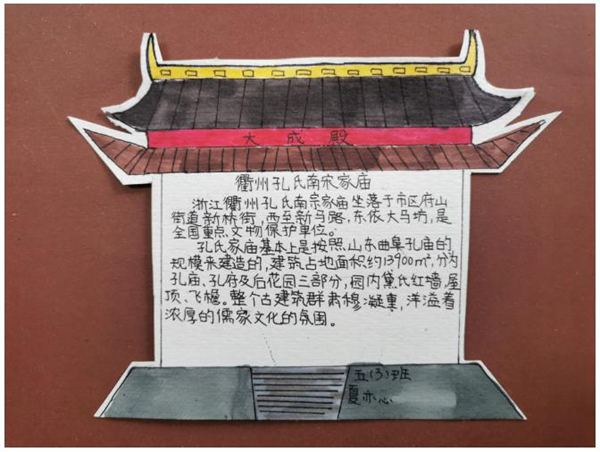 大成殿
衢州孔氏南宗家庙
浙江衢州孔氏南宗家庙坐落于市区府山
街道新桥街，西至新马路，东依大马坊，是
全国重点文物保护单位。
孔氏家庙基本上是按照山东曲阜孔庙的
规模来建造的，建筑占地面积约13900m²，分为
孔庙、孔府及后花园三部分，园内黛氏红墙，屋
顶、飞檐。整个古建筑群肃穆凝重，洋溢着
浓厚的儒家文化的氛围。
五(3)班
夏亦心